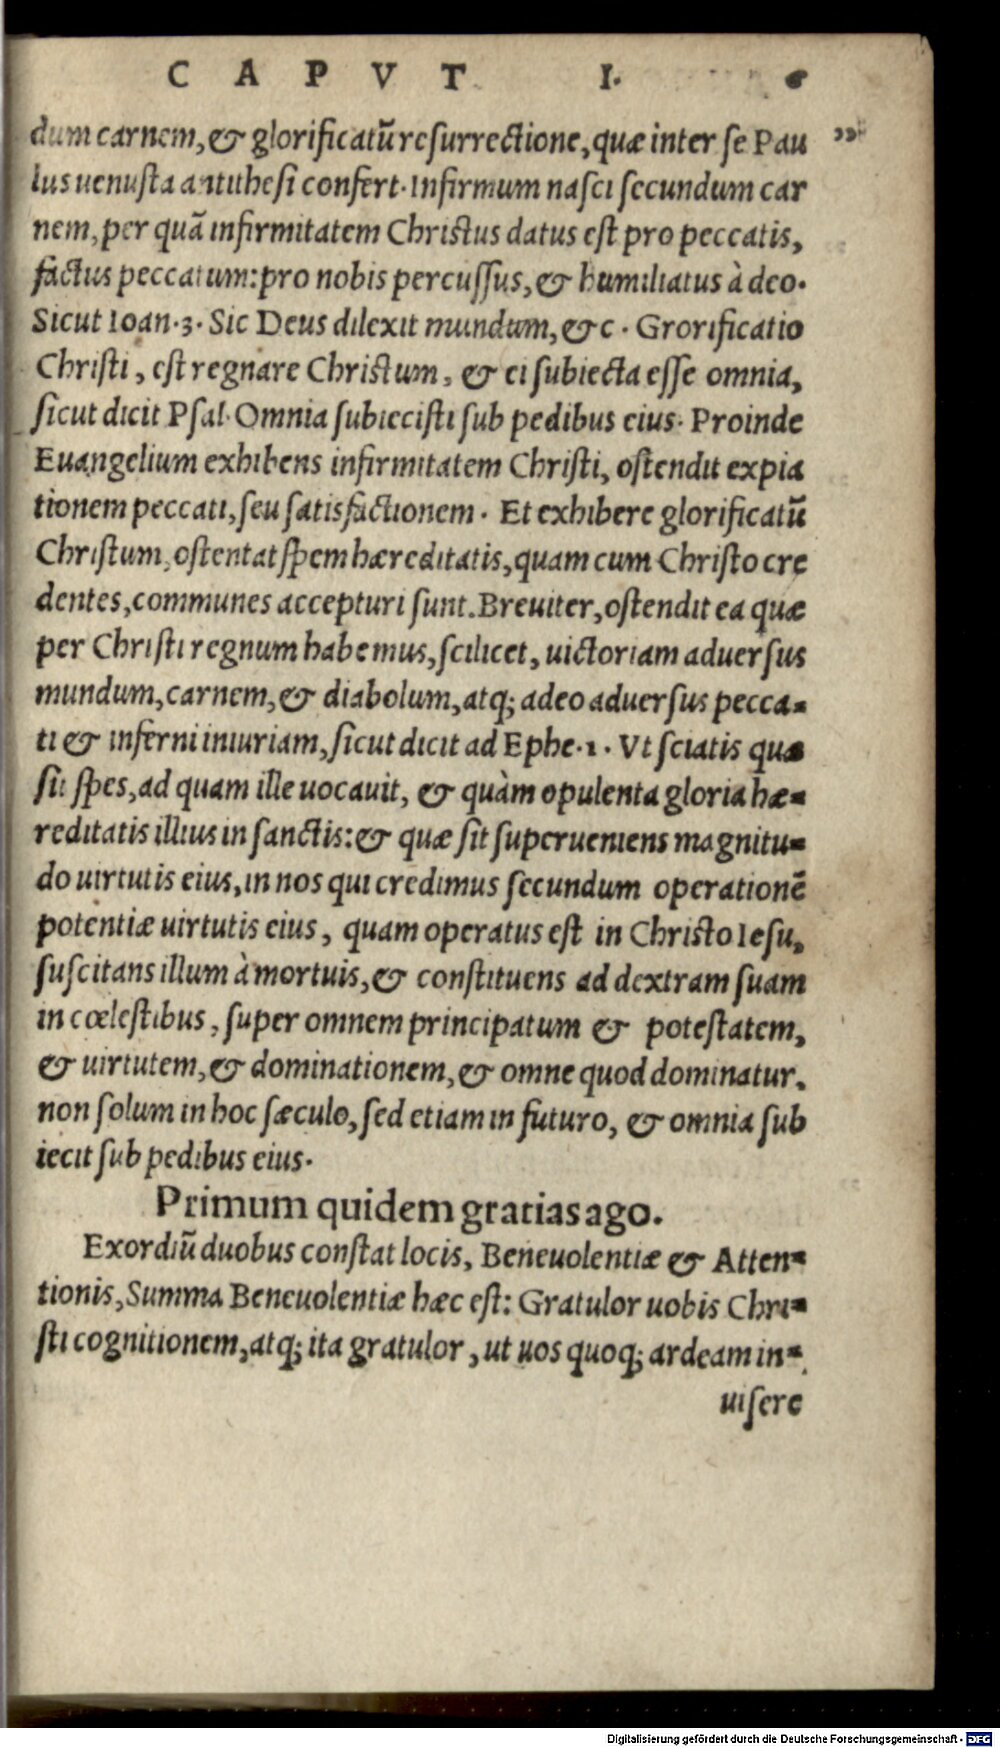 CAPVT I. 6
dum carnem, & glorificatũ resurrectione, quæ inter se Pau
lus uenusta antithesi confert. Infirmum nasci secundum car
nem, per quã infirmitatem Christus datus est pro peccatis,
factus peccatum: pro nobis percussus, & humiliatus à deo.
Sicut Ioan. 3. Sic Deus dilexit mundum, &c. Grorificatio
Christi, est regnare Christum, & ei subiecta esse omnia,
sicut dicit Psal. Omnia subiecisti sub pedibus eius. Proinde
Euangelium exhibens infirmitatem Christi, ostendit expia
tionem peccati, seu satisfactionem. Et exhibere glorificatũ
Christum, ostentat spem hæreditatis, quam cum Christo cre
dentes, communes accepturi sunt. Breuiter, ostendit ea quæ
per Christi regnum habemus, scilicet, uictoriam aduersus
mundum, carnem, & diabolum, atq; adeo aduersus pecca-
ti & inferni iniuriam, sicut dicit ad Ephe. 1. Vt sciatis quæ
sit spes, ad quam ille uocauit, & quàm opulenta gloria hæ-
reditatis illius in sanctis: & quæ sit superueniens magnitu-
do uirtutis eius, in nos qui credimus secundum operationẽ
potentiæ uirtutis eius, quam operatus est in Christo Iesu,
suscitans illum à mortuis, & constituens ad dextram suam
in cœlestibus, super omnem principatum & potestatem,
& uirtutem, & dominationem, & omne quod dominatur.
non solum in hoc sæculo, sed etiam in futuro, & omnia sub
iecit sub pedibus eius.
Primum quidem gratias ago.
Exordiũ duobus constat locis, Beneuolentiæ & Atten-
tionis, Summa Beneuolentiæ hæc est: Gratulor uobis Chri-
sti cognitionem, atq; ita gratulor, ut uos quoq; ardeam in-
uisere
Digitalisierung gefördert durch die Deutsche Forschungsgemeinschaft - DFG